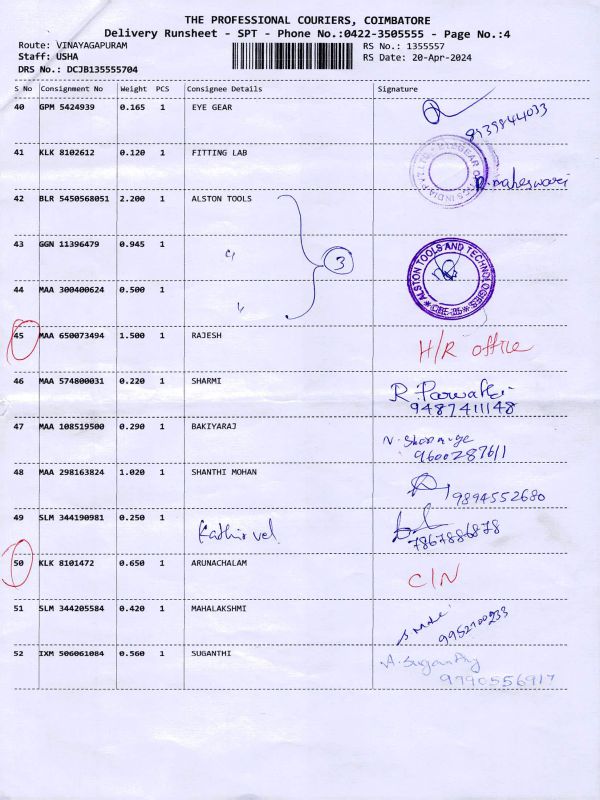 THE PROFESSIONAL COURIERS, COIMBATORE
Delivery Runsheet - SPT - Phone No.:0422-3505555 - Page No.:4
Route: VINAYAGAPURAM RS No.: 1355557
Staff: USHA RS Date: 20-Apr-2024
DRS No.: DCJB135555704
S No Consignment No Weight PCS Consignee Details Signature
40 GPM 5424939 0.165 1 EYE GEAR
41 KLK 8102612 0.120 1 FITTING LAB
maheswari
42 BLR 5450568051 2.200 1 ALSTON TOOLS
43 GGN 11396479 0.945 1
3
ALSTON TOOLS AND TECHNOLOGIES
CBE-35
44 MAA 300400624 0.500 1
45 MAA 650073494 1.500 1 RAJESH H/R office
46 MAA 574800031 0.220 1 SHARMI R. Parvathi
9487411148
47 MAA 108519500 0.290 1 BAKIYARAJ
9600287611
48 MAA 298163824 1.020 1 SHANTHI MOHAN
9894552680
49 SLM 344190981 0.250 1 Kathirvel
7867886878
50 KLK 8101472 0.650 1 ARUNACHALAM C/N
51 SLM 344205584 0.420 1 MAHALAKSHMI
52 IXM 506061084 0.560 1 SUGANTHI A. Suganthy
9790556917